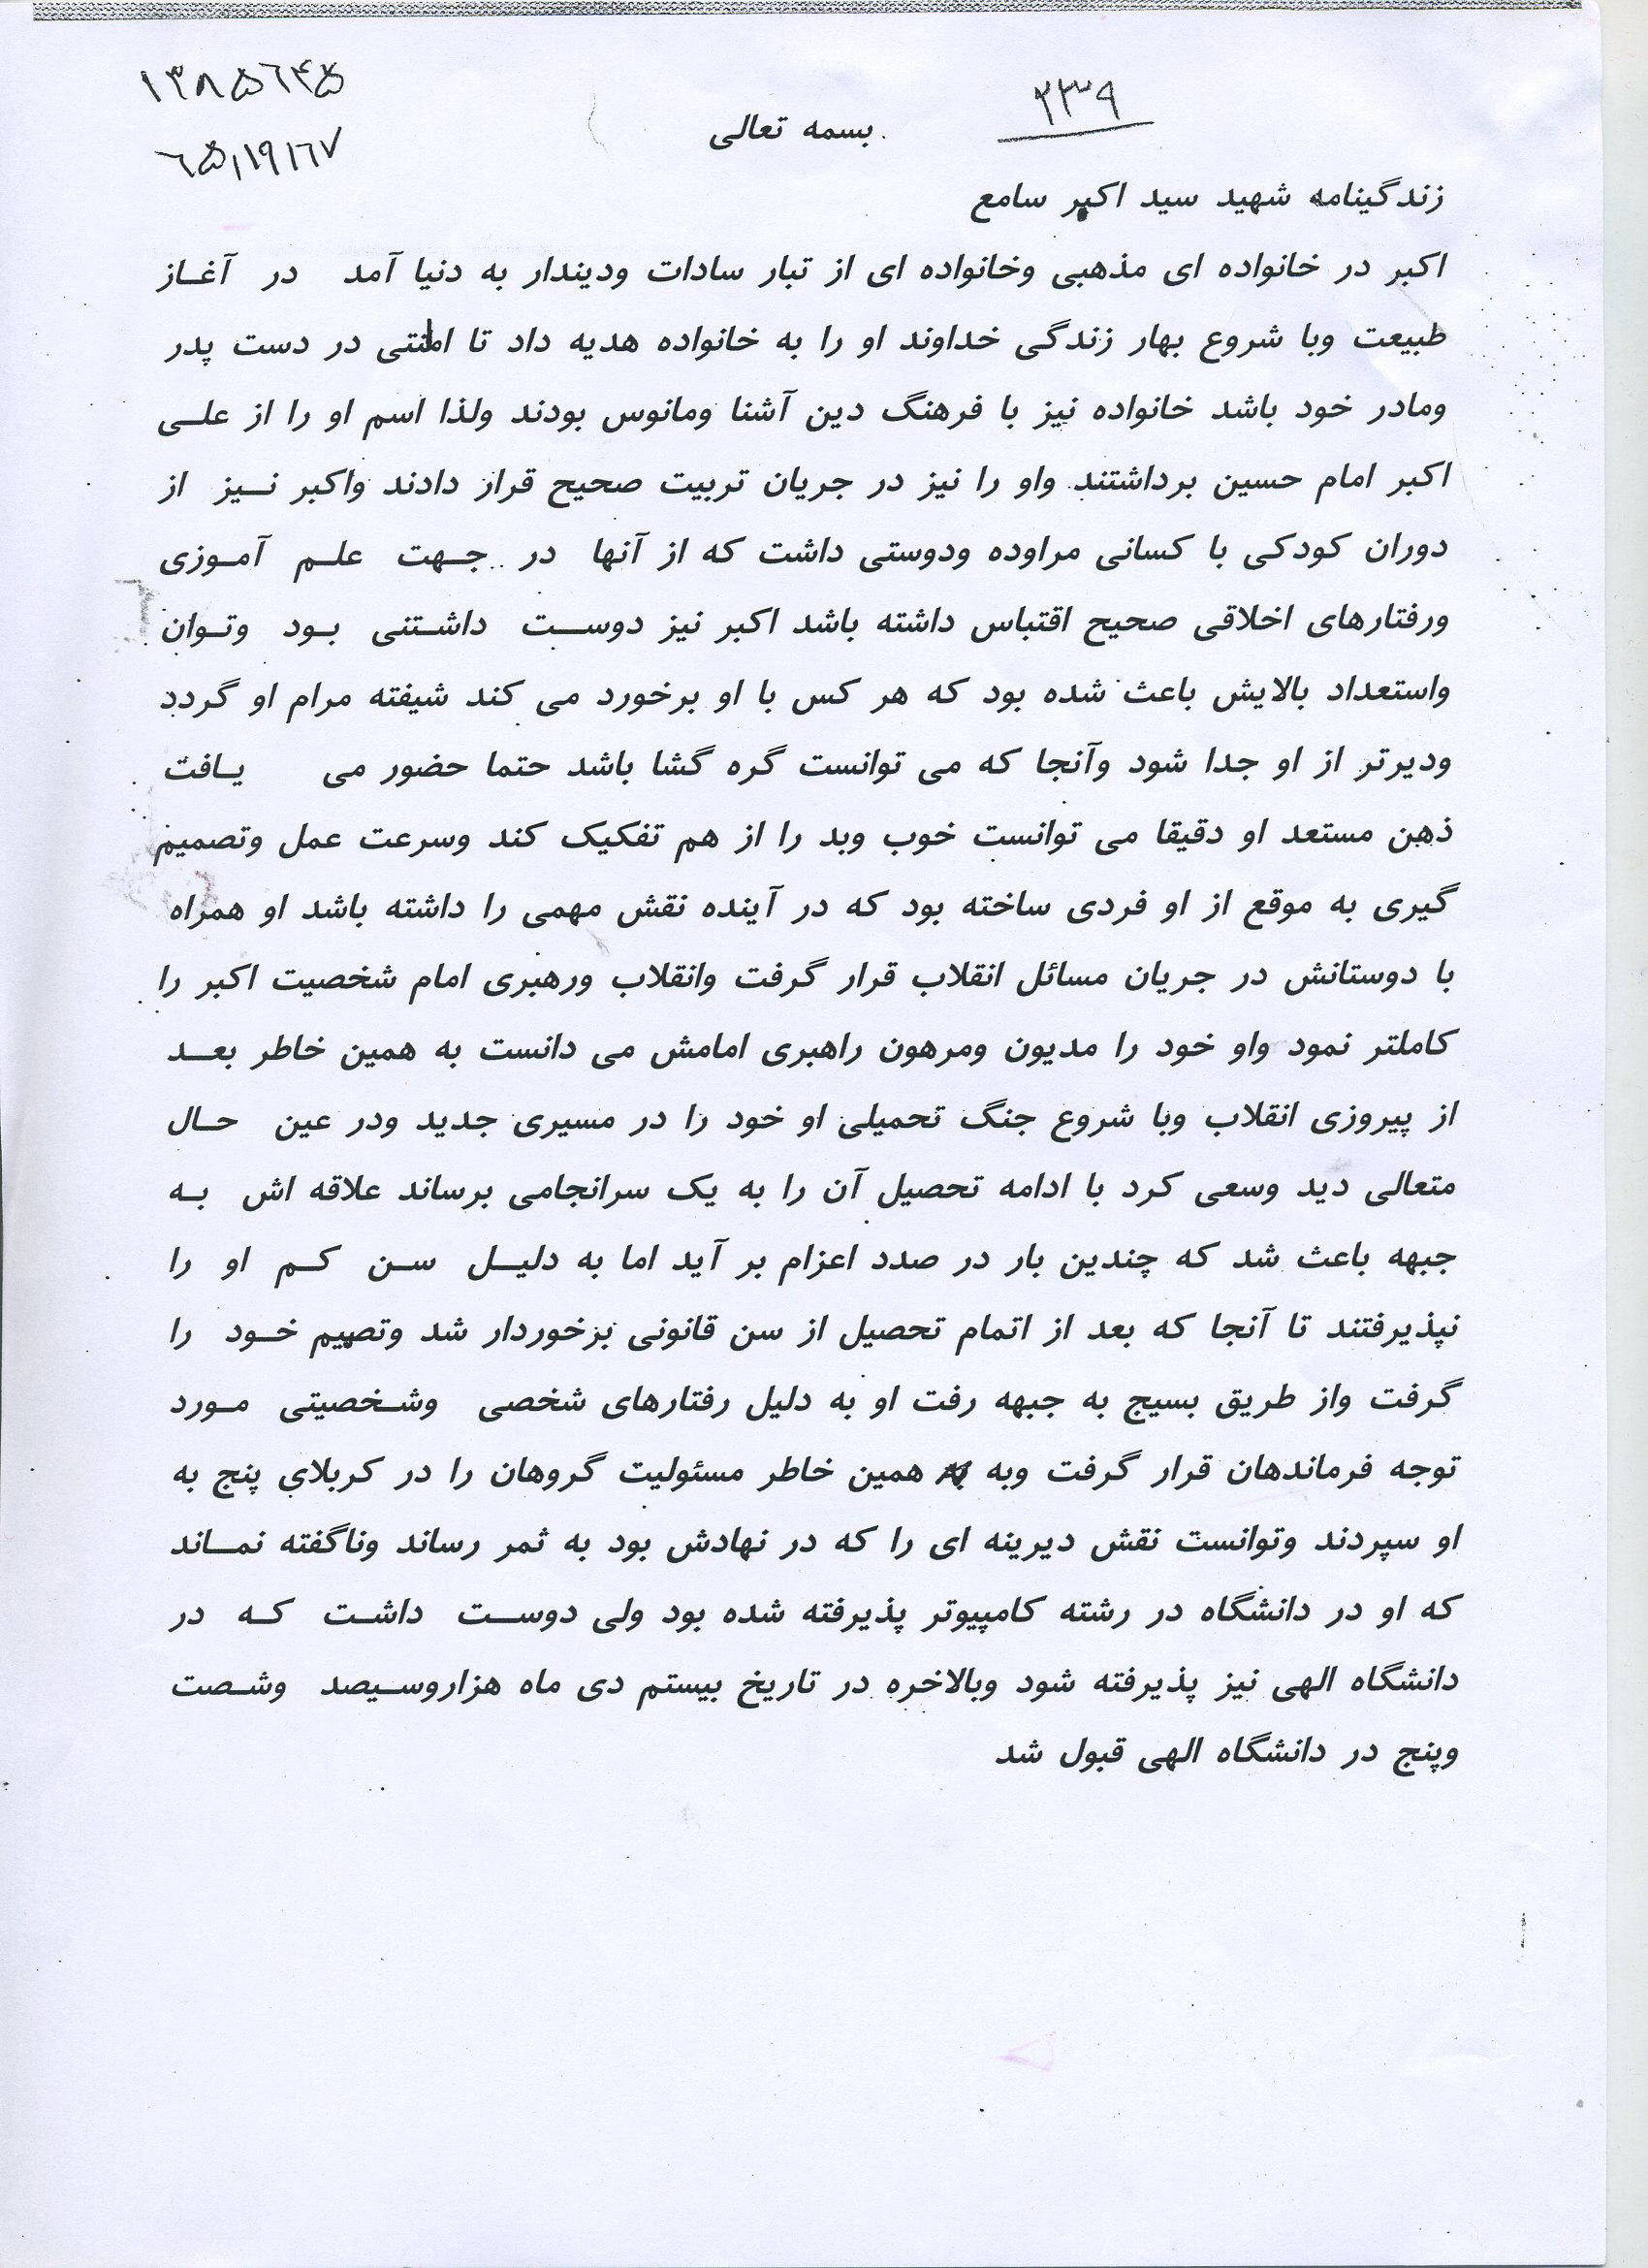 ۱۳۸۵۶۴۵
۲۳۹
۶۵۱۱۹۱۶۷
بسمه تعالی
زندگینامه شهید سید اکبر سامع
اکبر در خانواده ای مذهبی وخانواده ای از تبار سادات ودیندار به دنیا آمد در آغاز
طبیعت وبا شروع بهار زندگی خداوند او را به خانواده هدیه داد تا امانتی در دست پدر
ومادر خود باشد خانواده نیز با فرهنگ دین آشنا ومانوس بودند ولذا اسم او را از علی
اکبر امام حسین برداشتند واو را نیز در جریان تربیت صحیح قرار دادند واکبر نیز از
دوران کودکی با کسانی مراوده ودوستی داشت که از آنها در جهت علم آموزی
ورفتارهای اخلاقی صحیح اقتباس داشته باشد اکبر نیز دوست داشتنی بود وتوان
واستعداد بالایش باعث شده بود که هر کس با او برخورد می کند شیفته مرام او گردد
ودیرتر از او جدا شود وآنجا که می توانست گره گشا باشد حتما حضور می یافت
ذهن مستعد او دقیقا می توانست خوب وبد را از هم تفکیک کند وسرعت عمل وتصمیم
گیری به موقع از او فردی ساخته بود که در آینده نقش مهمی را داشته باشد او همراه
با دوستانش در جریان مسائل انقلاب قرار گرفت وانقلاب ورهبری امام شخصیت اکبر را
کاملتر نمود واو خود را مدیون ومرهون راهبری امامش می دانست به همین خاطر بعد
از پیروزی انقلاب وبا شروع جنگ تحمیلی او خود را در مسیری جدید ودر عین حال
متعالی دید وسعی کرد با ادامه تحصیل آن را به یک سرانجامی برساند علاقه اش به
جبهه باعث شد که چندین بار در صدد اعزام بر آید اما به دلیل سن کم او را
نپذیرفتند تا آنجا که بعد از اتمام تحصیل از سن قانونی برخوردار شد وتصمیم خود را
گرفت واز طریق بسیج به جبهه رفت او به دلیل رفتارهای شخصی وشخصیتی مورد
توجه فرماندهان قرار گرفت وبه همین خاطر مسئولیت گروهان را در کربلای پنج به
او سپردند وتوانست نقش دیرینه ای را که در نهادش بود به ثمر رساند وناگفته نماند
که او در دانشگاه در رشته کامپیوتر پذیرفته شده بود ولی دوست داشت که در
دانشگاه الهی نیز پذیرفته شود وبالاخره در تاریخ بیستم دی ماه هزاروسیصد وشصت
وپنج در دانشگاه الهی قبول شد